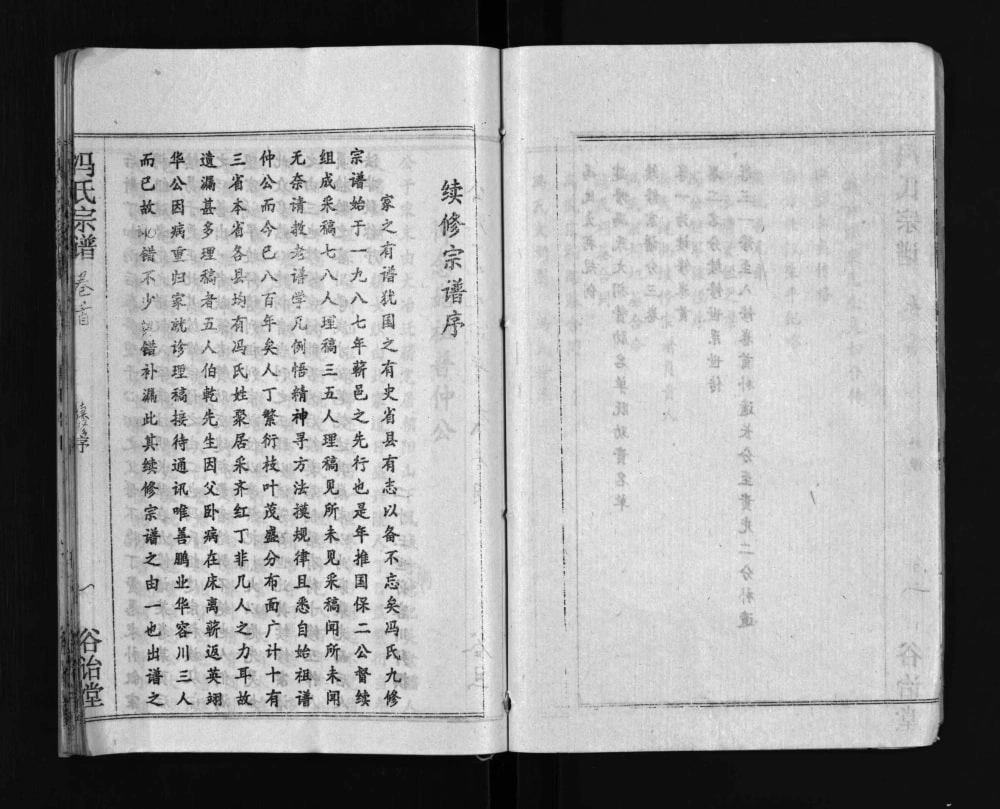 续修宗谱序
家之有谱犹国之有史省县有志以备不忘矣冯氏九修
宗谱始于一九八七年蕲邑之先行也是年推国保二公督续
组成采稿七八人理稿三五人理稿见所未见采稿闻所未闻
无奈请教老谱学凡例悟精神寻方法摸规律且悉自始祖谱
仲公而今已八百年矣人丁繁衍枝叶茂盛分布面广计十有
三省本省各县均有冯氏姓聚居采齐红丁非几人之力耳故
遗漏甚多理稿者五人伯乾先生因父卧病在床离蕲返英翊
华公因病重归家就诊理稿接待通讯唯善鹏业华容川三人
而已故 错不少 错补漏此其续修宗谱之由一也出谱之
冯氏宗谱
卷首
序
一
谷诒堂